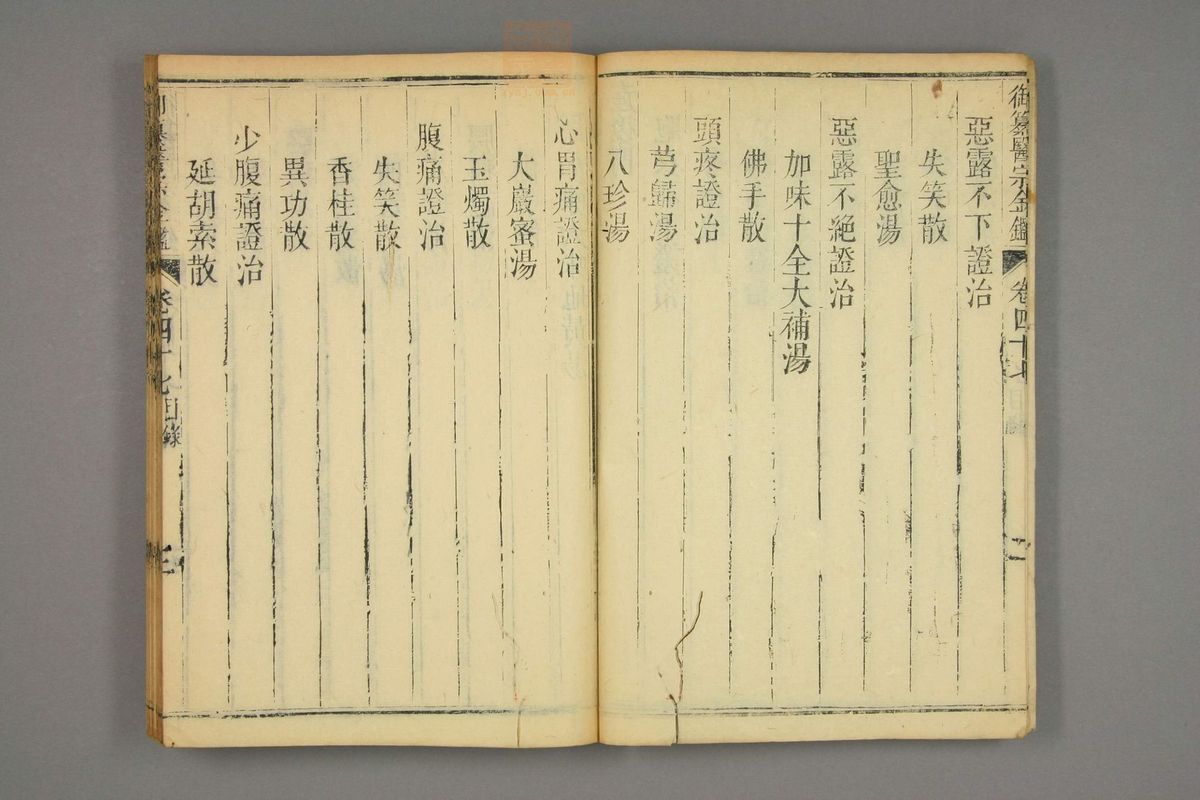 御纂醫宗金鑑 卷四十七 目錄 一
惡露不下證治
失笑散
聖愈湯
惡露不絕證治
加味十全大補湯
佛手散
頭疼證治
芎歸湯
八珍湯
心胃痛證治
大巖蜜湯
玉燭散
腹痛證治
失笑散
香桂散
異功散
少腹痛證治
延胡索散
卷四十七目錄